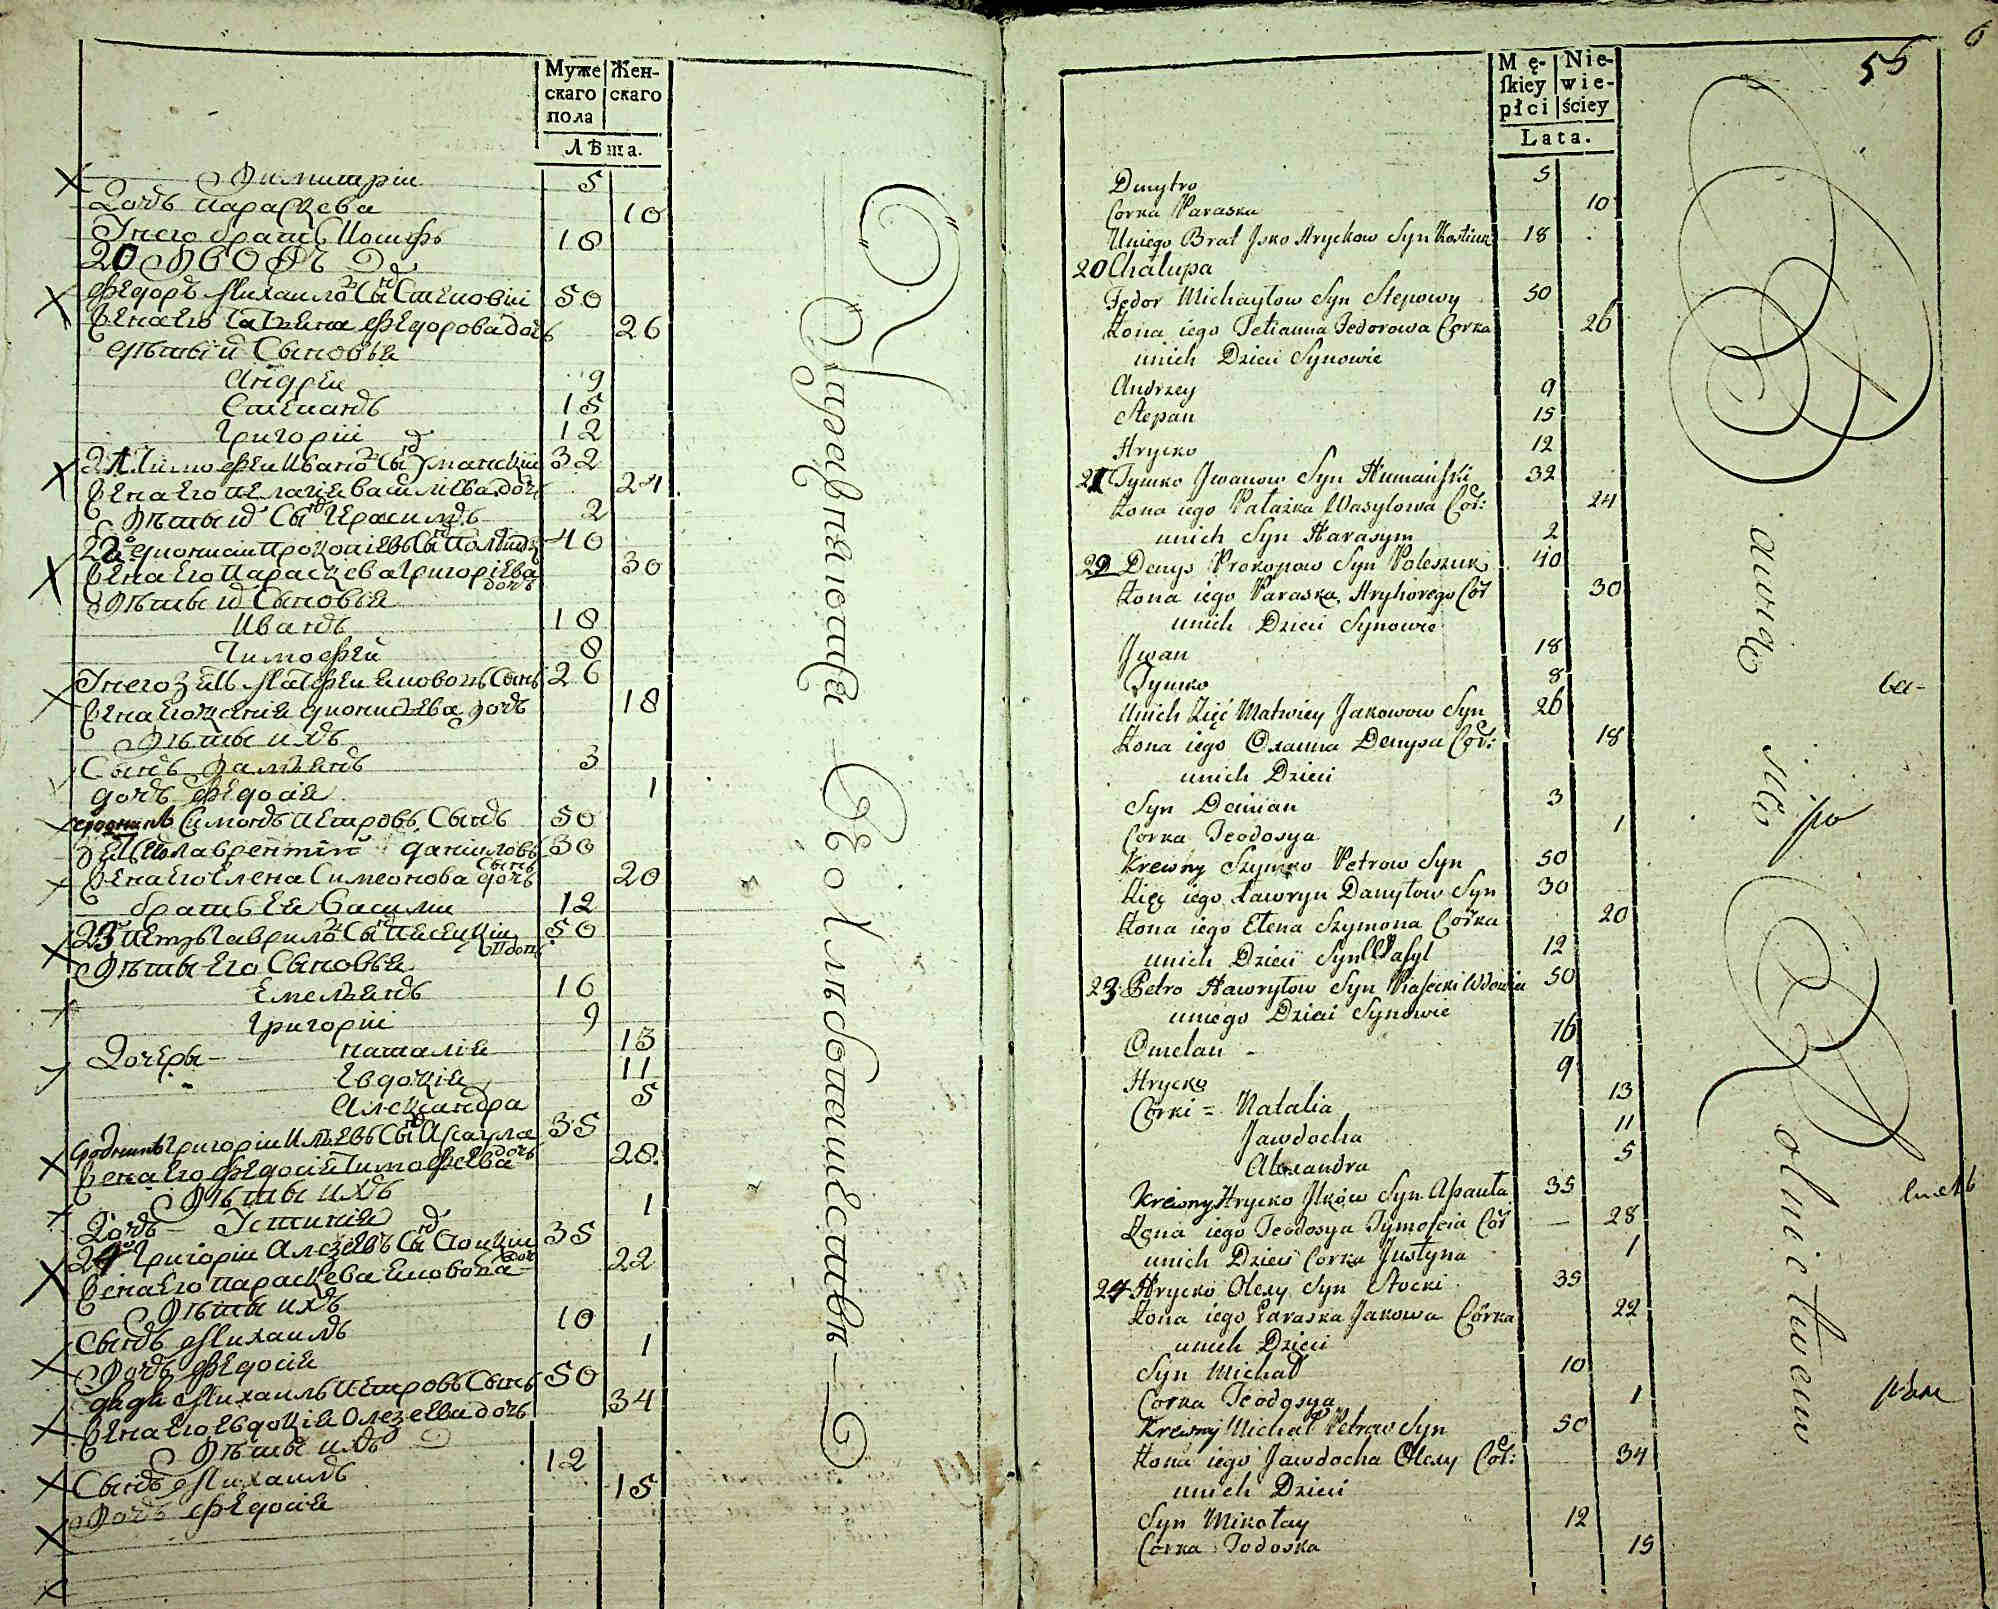 Муже Жен-
скаго скаго
пола
Лѣта.
Димитріи 5
Дочь Параскева 10
У него братъ Иосифъ 18
20 Дворъ
Федоръ Михаиловъ Сынъ Степовіи 50
Жена его Татьяна Федорова дочь 26
Дѣты ихъ Сыновья
Андреи 9
Степанъ 15
Григоріи 12
21 Тимофеи Ивановъ Сынъ Уманскіи 32
Жена его Пелагія Васильева дочь 24
Дѣты ихъ Сынъ Герасимъ 2
22 Дионисіи Прокопіевъ Сынъ 40
Жена его Параскева Григоріева дочь 30
Дѣты ихъ Сыновья
Иванъ 18
Тимофеи 8
У него зять Матфеи Якововъ Сынъ 26
Жена его Ксенія Дионисіева дочь 18
Дѣты ихъ
Сынъ Дамьянъ 3
дочь Федосія 1
сродникъ Симонъ Петровъ Сынъ 50
Зять его Лаврентіи Даниловъ Сынъ 30
Жена его Елена Симеонова дочь 20
братъ ея Василии 12
23 Петръ Гавриловъ Сынъ Песецкіи вдовъ 50
Дѣты его Сыновья
Емельянъ 16
Григоріи 9
Дочеры Наталія 13
Евдокія 11
Александра 5
сродникъ Григоріи Ильевъ Сынъ 35
Жена его Федосія Тимофеева дочь 28
Дѣты ихъ
Дочь Устинія 1
24 Григоріи Алезеевъ Сынъ Стоцкіи 35
Жена его Параскева Яковова дочь 22
Дѣты ихъ
Сынъ Михаилъ 10
Дочь Федосія 1
Михаилъ Петровъ Сынъ 50
Жена его Евдокія Олезеева дочь 34
Дѣты ихъ
Сынъ Михаилъ 12
Дочь Федосія 15
Управляющій Вольнопомѣстіемъ
6
55
Mę- Nie-
ſkiey wie-
płci ściey
Lata.
Dmytro 5
Corka Paraska 10
U niego Brat Jsko Hryckow Syn Kostiuk 18
20 Chałupa
Fedor Michayłow Syn Stepowy 50
Żona iego Tetianna Fedorowa Corka 26
unich Dzieci Synowie
Andrzey 9
Stepan 15
Hrycko 12
21 Tymko Jwanow Syn Humański 32
Żona iego Pałażka Wasylowa Cor: 24
unich Syn Harasym 2
22 Denys Prokopow Syn Poleszuk 40
Żona iego Paraska Hryhorego Cor 30
unich Dzieci Synowie
Jwan 18
Tymko 8
Unich Zięć Matwiey Jakowow Syn 26
Żona iego Oxanna Denysa Cor: 18
unich Dzieci
Syn Demian 3
Corka Teodosya 1
Krewny Szymko Petrow Syn 50
Zięć iego Ławryn Danyłow Syn 30
Żona iego Elena Szymona Corka 20
unich Dzieci Syn Wasyl 12
23 Petro Hawryłow Syn Piasecki Wdowiec 50
uniego Dzieci Synowie
Omelan 16
Hrycko 9
Córki = Natalia 13
Jawdocha 11
Alexandra 5
Krewny Hrycko Jlków Syn Asauła 35
Żona iego Teodosya Tymoscia Cor 28
unich Dzieci Corka Justyna 1
24 Hrycko Olexy Syn Stocki 35
Żona iego Paraska Jakowa Córka 22
unich Dzieci
Syn Michał 10
Corka Teodosya 1
Krewny Michał Petrow Syn 50
Żona iego Jawdocha Olexy Cor: 34
unich Dzieci
Syn Mikołay 12
Corka Todoska 15